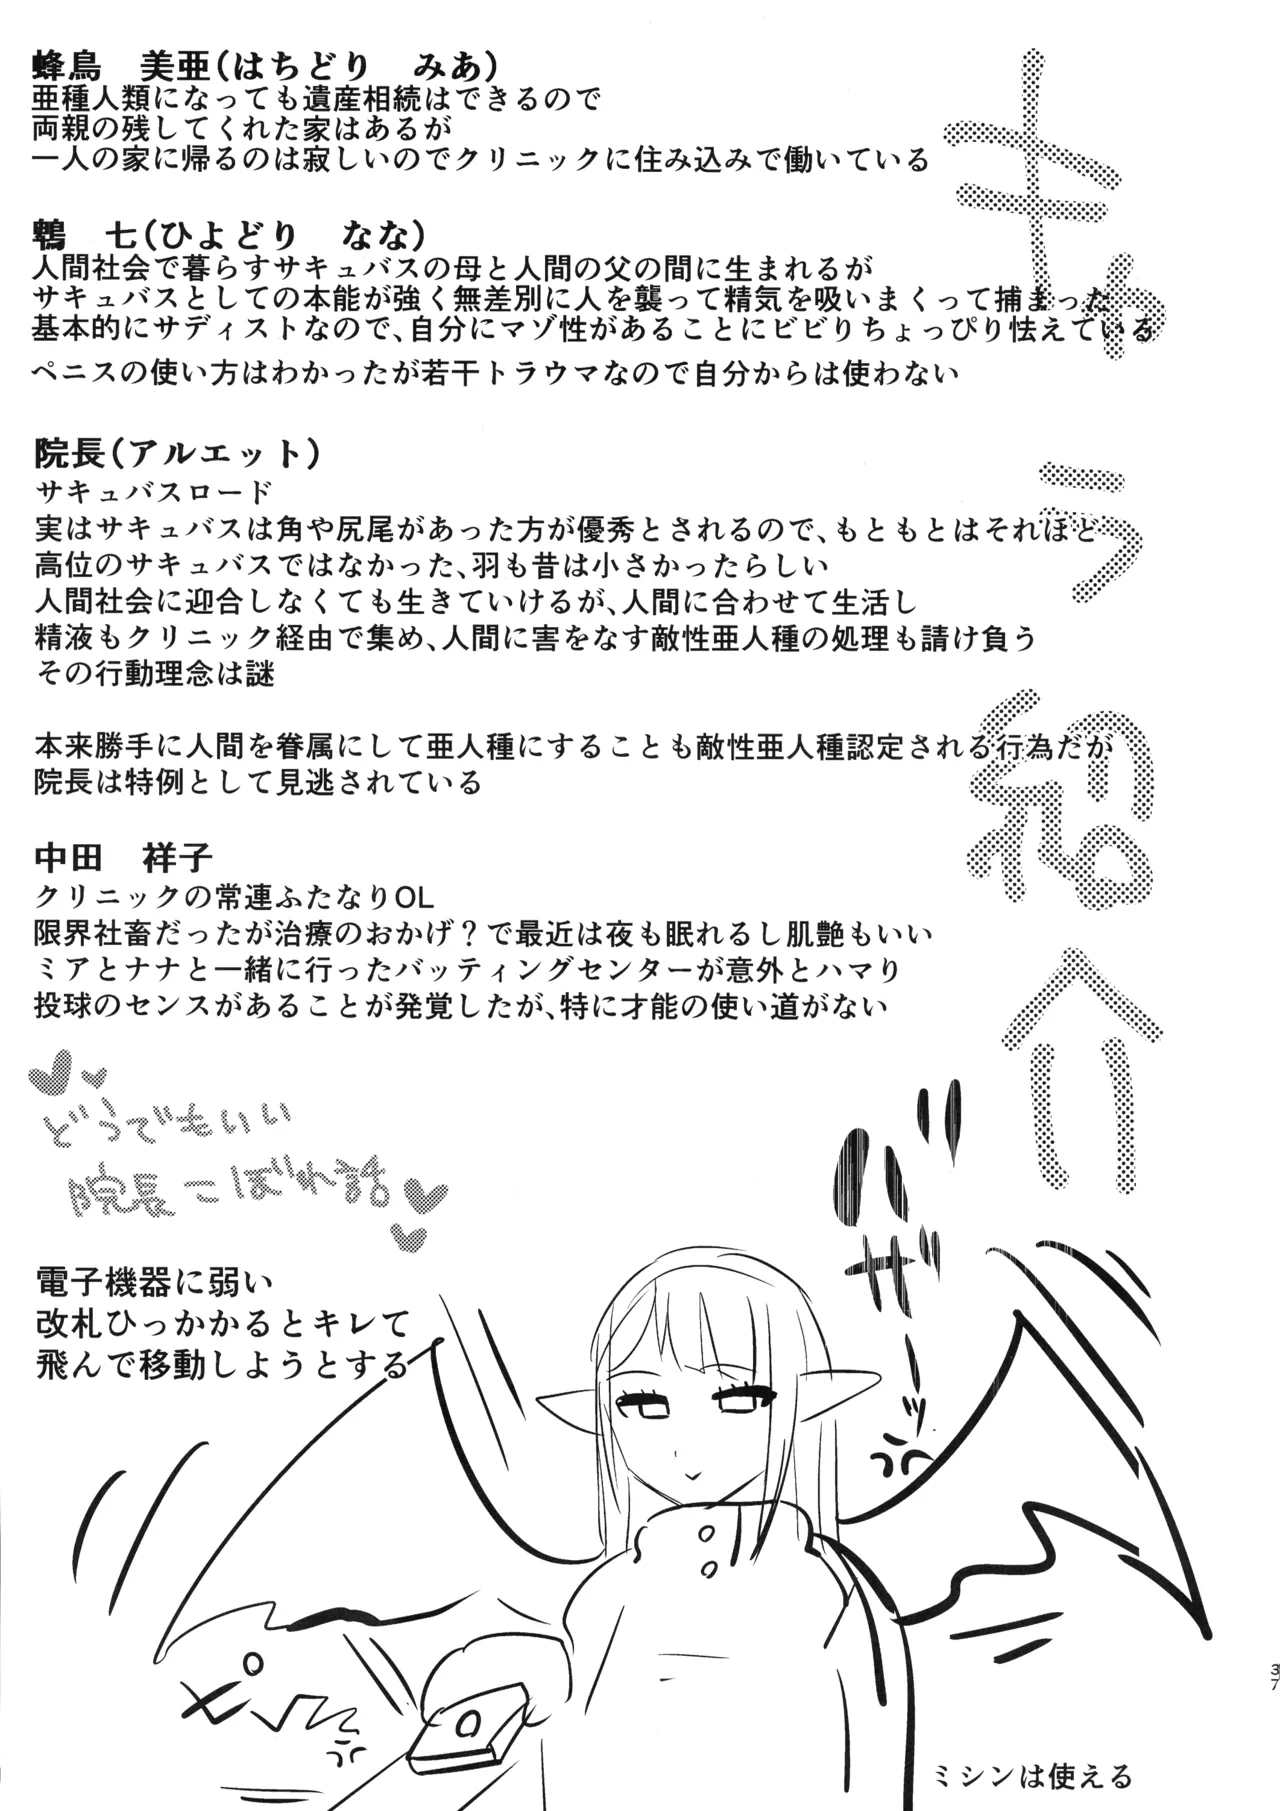 キャラ紹介
蜂鳥　美亜(はちどり　みあ)
亜種人類になっても遺産相続はできるので
両親の残してくれた家はあるが
一人の家に帰るのは寂しいのでクリニックに住み込みで働いている
鵯　七(ひよどり　なな)
人間社会で暮らすサキュバスの母と人間の父の間に生まれるが
サキュバスとしての本能が強く無差別に人を襲って精気を吸いまくって捕まった
基本的にサディストなので、自分にマゾ性があることにビビりちょっぴり怯えている
ペニスの使い方はわかったが若干トラウマなので自分からは使わない
院長(アルエット)
サキュバスロード
実はサキュバスは角や尻尾があった方が優秀とされるので、もともとはそれほど
高位のサキュバスではなかった、羽も昔は小さかったらしい
人間社会に迎合しなくても生きていけるが、人間に合わせて生活し
精液もクリニック経由で集め、人間に害をなす敵性亜人種の処理も請け負う
その行動理念は謎
本来勝手に人間を眷属にして亜人種にすることも敵性亜人種認定される行為だが
院長は特例として見逃されている
中田　祥子
クリニックの常連ふたなりOL
限界社畜だったが治療のおかげ？で最近は夜も眠れるし肌艶もいい
ミアとナナと一緒に行ったバッティングセンターが意外とハマり
投球のセンスがあることが発覚したが、特に才能の使い道がない
どうでもいい
院長こぼれ話
電子機器に弱い
改札ひっかかるとキレて
飛んで移動しようとする
バサ゛ーッ
ミシンは使える
37